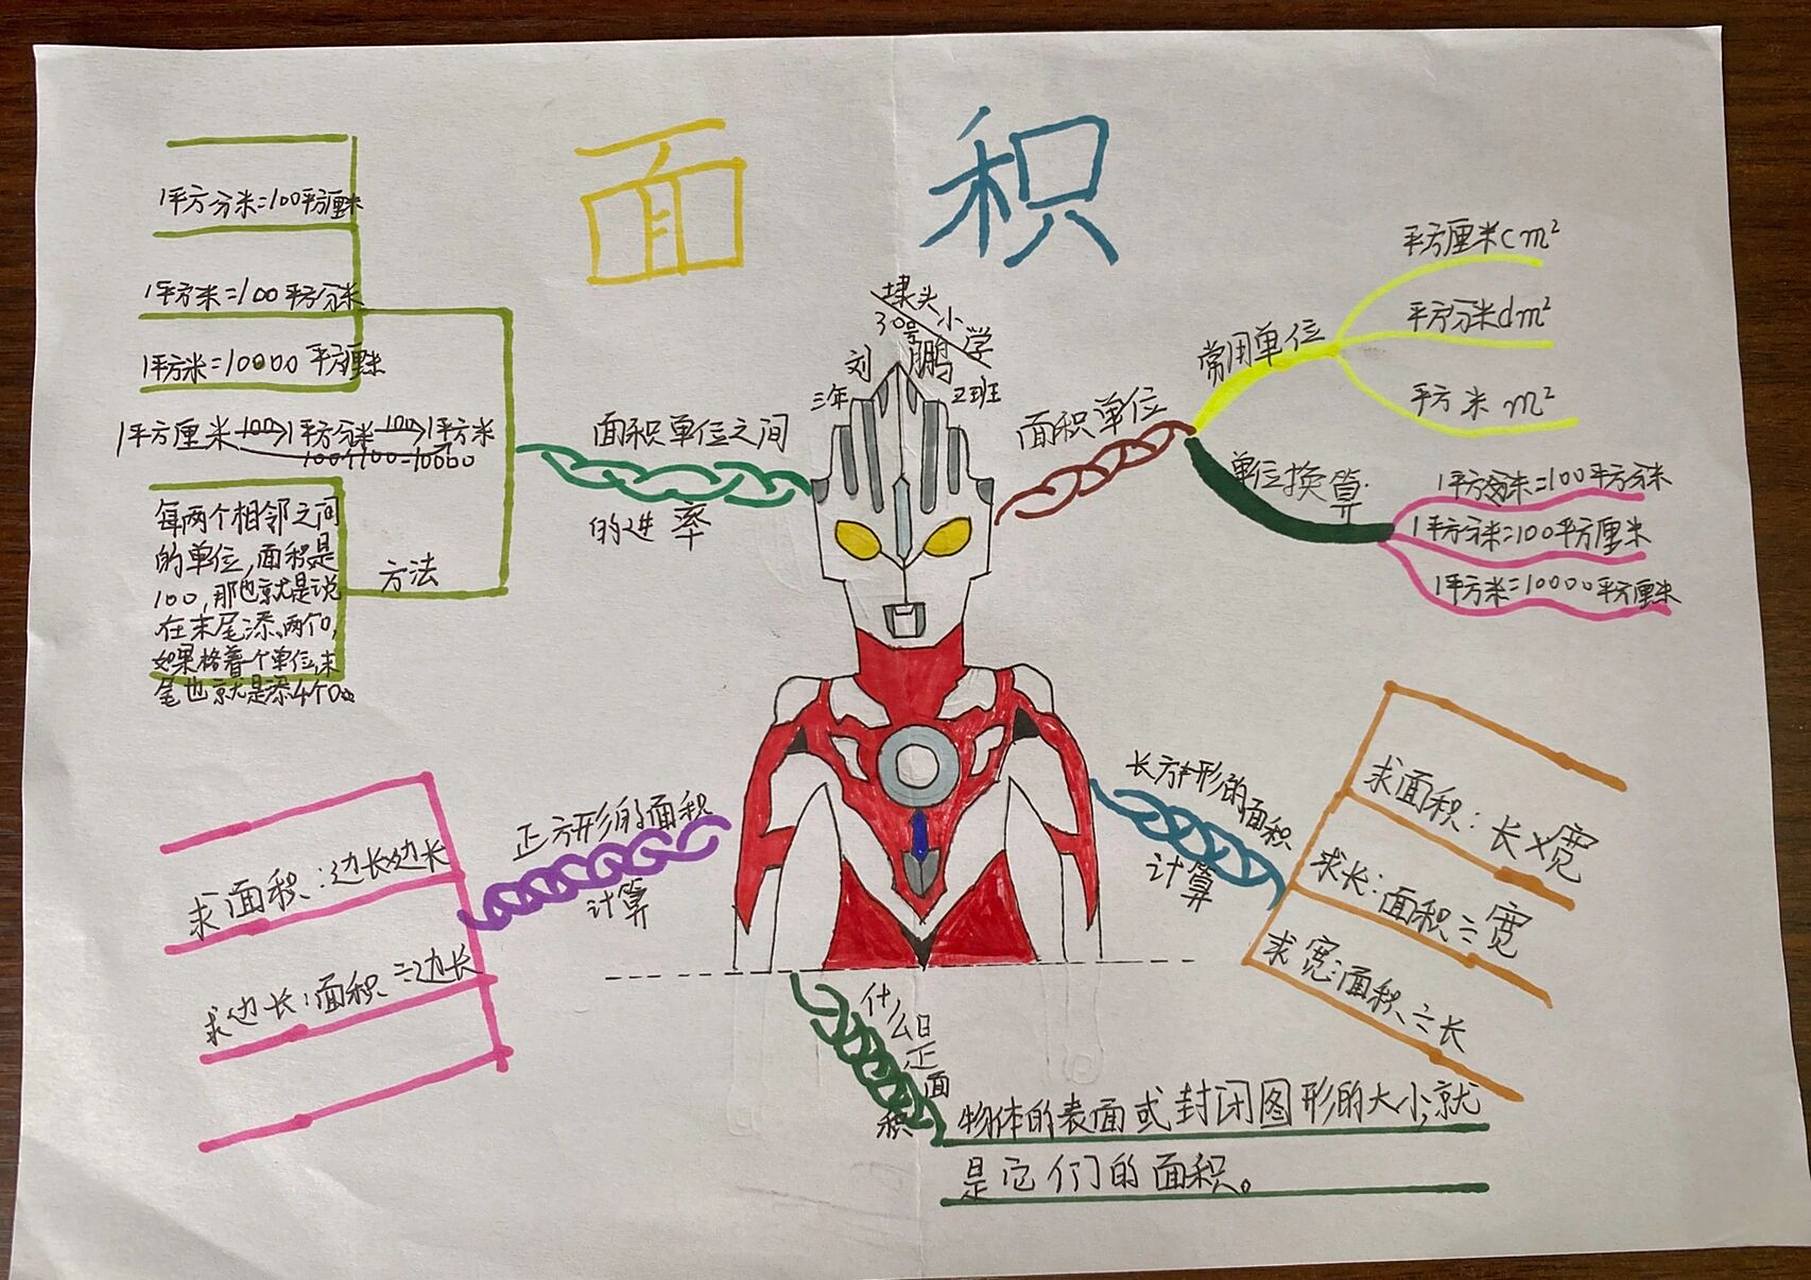 面积
埭头小学
30号
刘鹏
三年2班
面积单位之间
的进率
1平方分米=100平方厘米
1平方米=100平方分米
1平方米=10000平方厘米
1平方厘米100→1平方分米100→1平方米
100×100=10000
方法
每两个相邻之间
的单位,面积是
100,那也就是说
在末尾添两个0,
如果格着一个单位,末
尾也就是添4个0。
面积单位
常用单位
平方厘米cm²
平方分米dm²
平方米 m²
单位换算
1平方米=100平方分米
1平方分米=100平方厘米
1平方米=10000平方厘米
正方形的面积
计算
求面积:边长×边长
求边长:面积÷边长
长方形的面积
计算
求面积:长×宽
求长:面积÷宽
求宽:面积÷长
什么是面积
物体的表面或封闭图形的大小,就
是它们的面积。